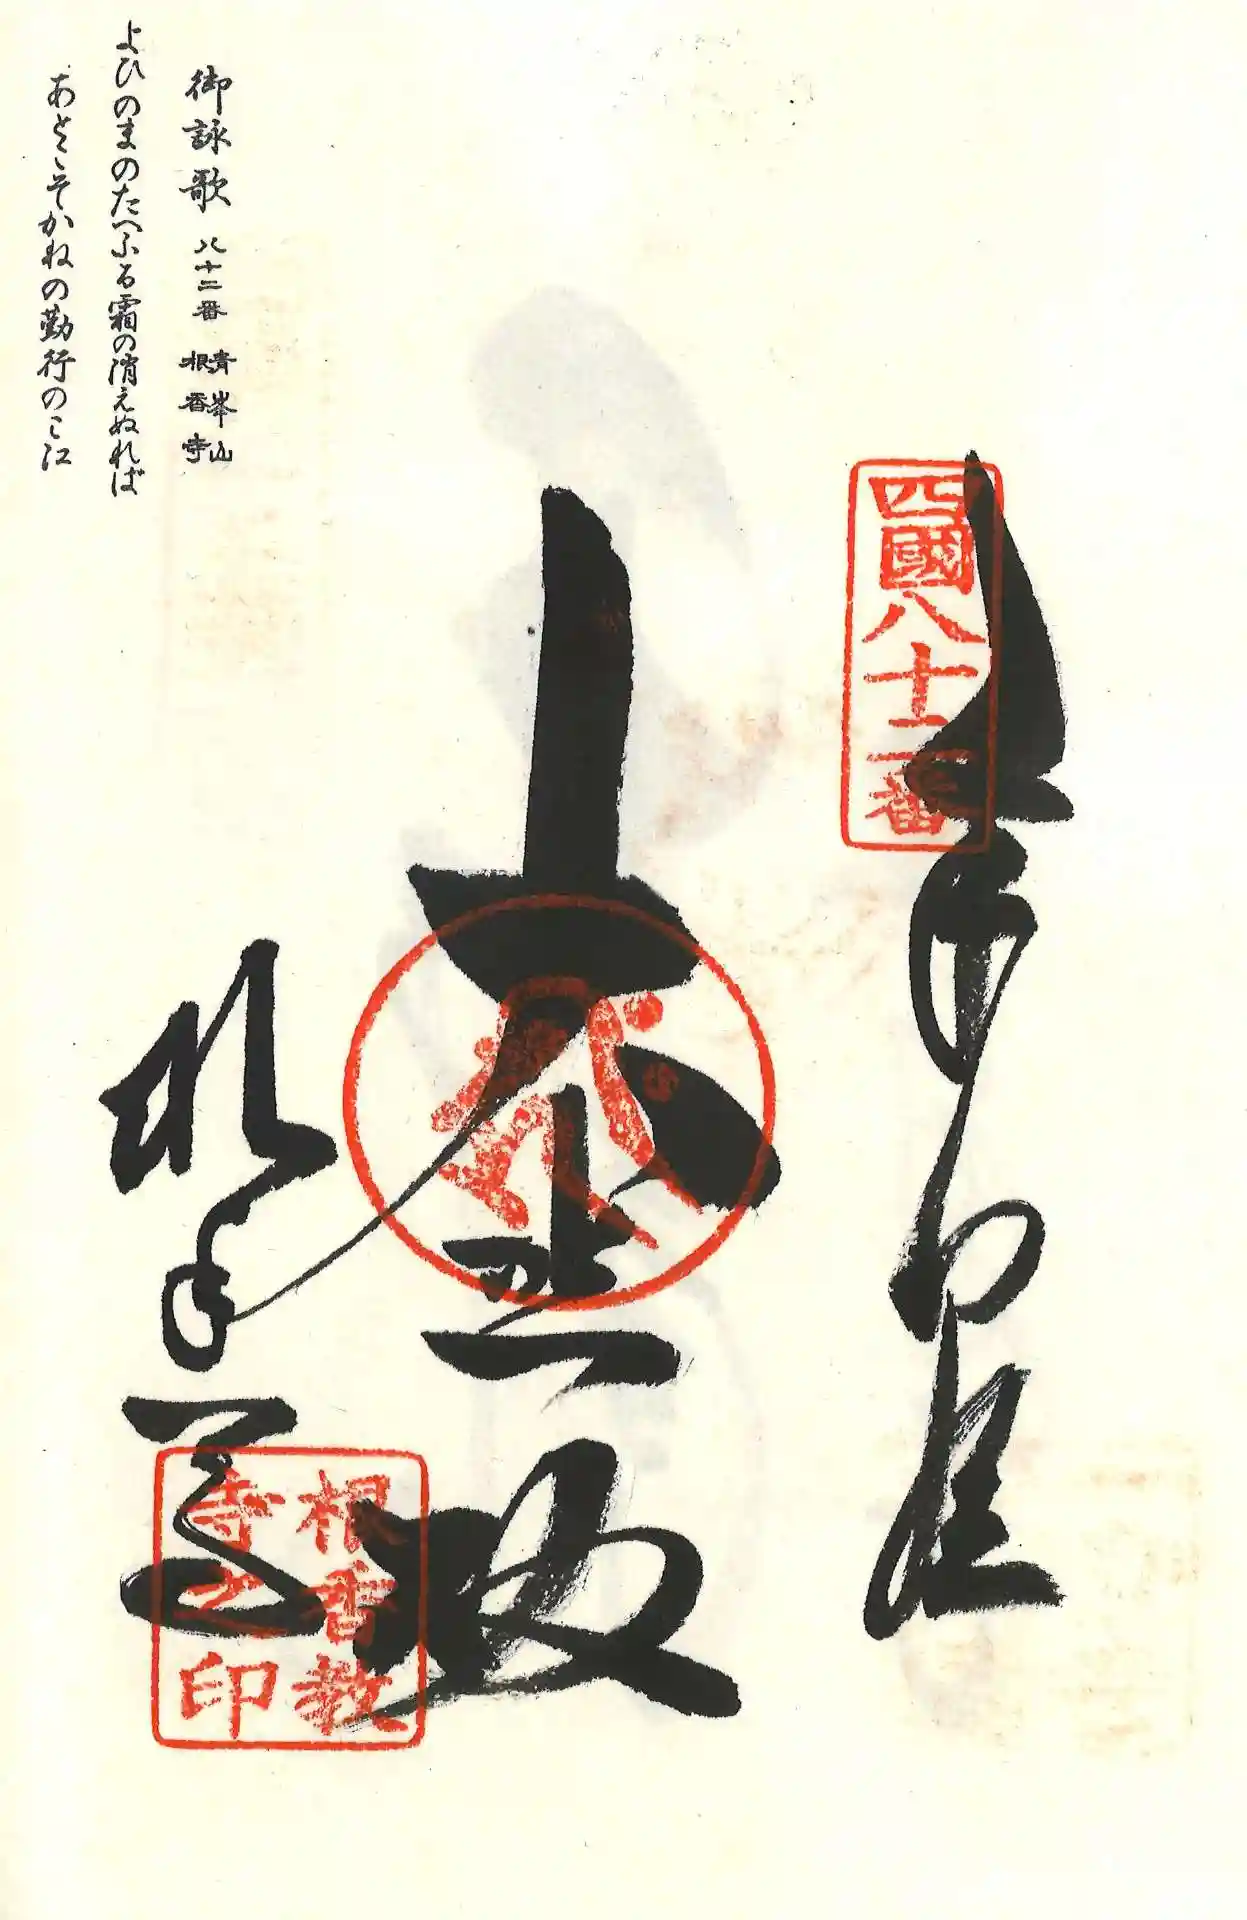 四國八十二番
奉納経
大悲殿
根香寺
根香教
寺之印
御詠歌 八十二番 青峯山
根香寺
よひのまのたへふる霜の消えぬれば
あとこそかねの勤行のこ江